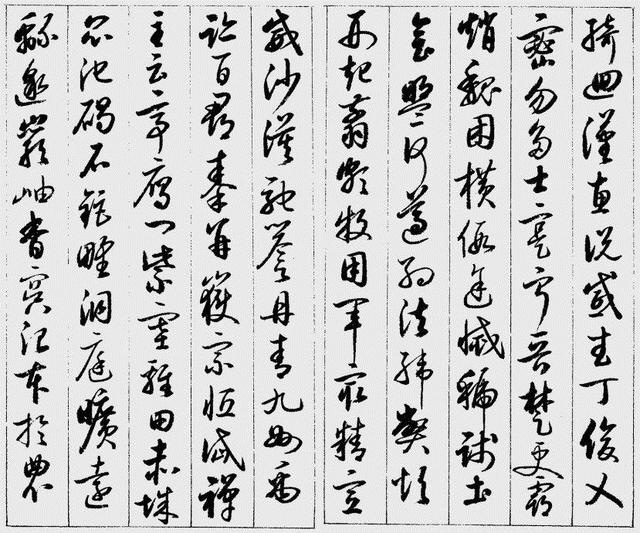 綺回漢惠說感武丁俊乂
密勿多士寔寧晉楚更霸
趙魏困橫假途滅虢踐土
會盟何遵約法韓弊煩
刑起翦頗牧用軍最精宣
威沙漠馳譽丹青九州禹
跡百郡秦并嶽宗恆岱禪
主云亭雁門紫塞雞田赤城
昆池碣石鉅野洞庭曠遠
綿邈巖岫杳冥治本於農